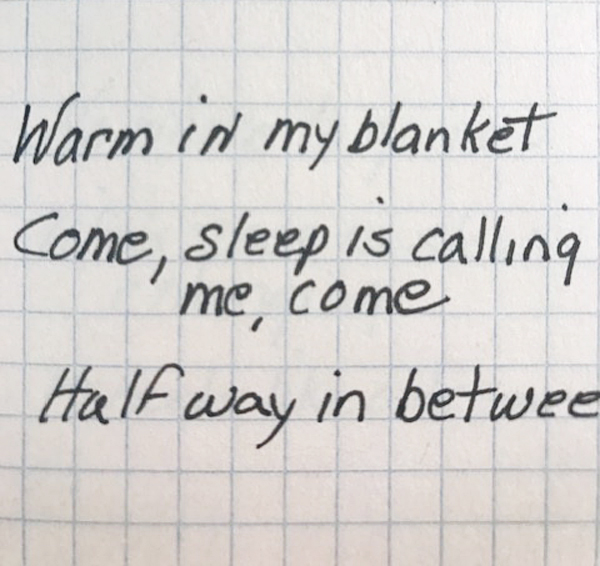 Warm in my blanket
Come, sleep is calling
me, come
Halfway in betwee